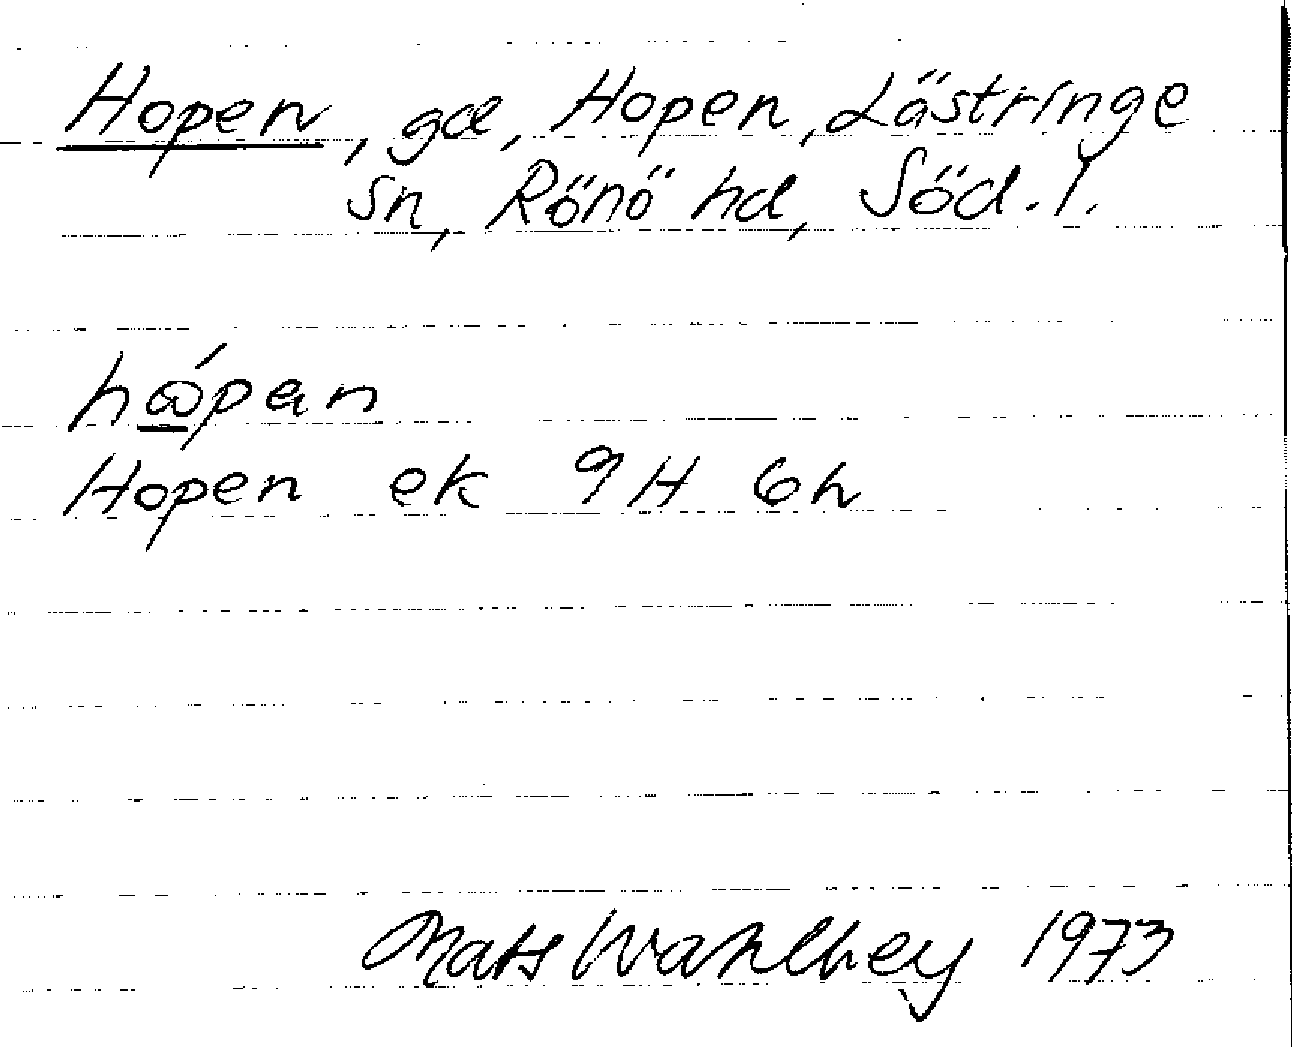 Hopen, gd, Hopen, Lästringe
sn, Rönö hd, Söd. l.
hώpan
Hopen ek 9H 6h
Mats Wahlberg 1973